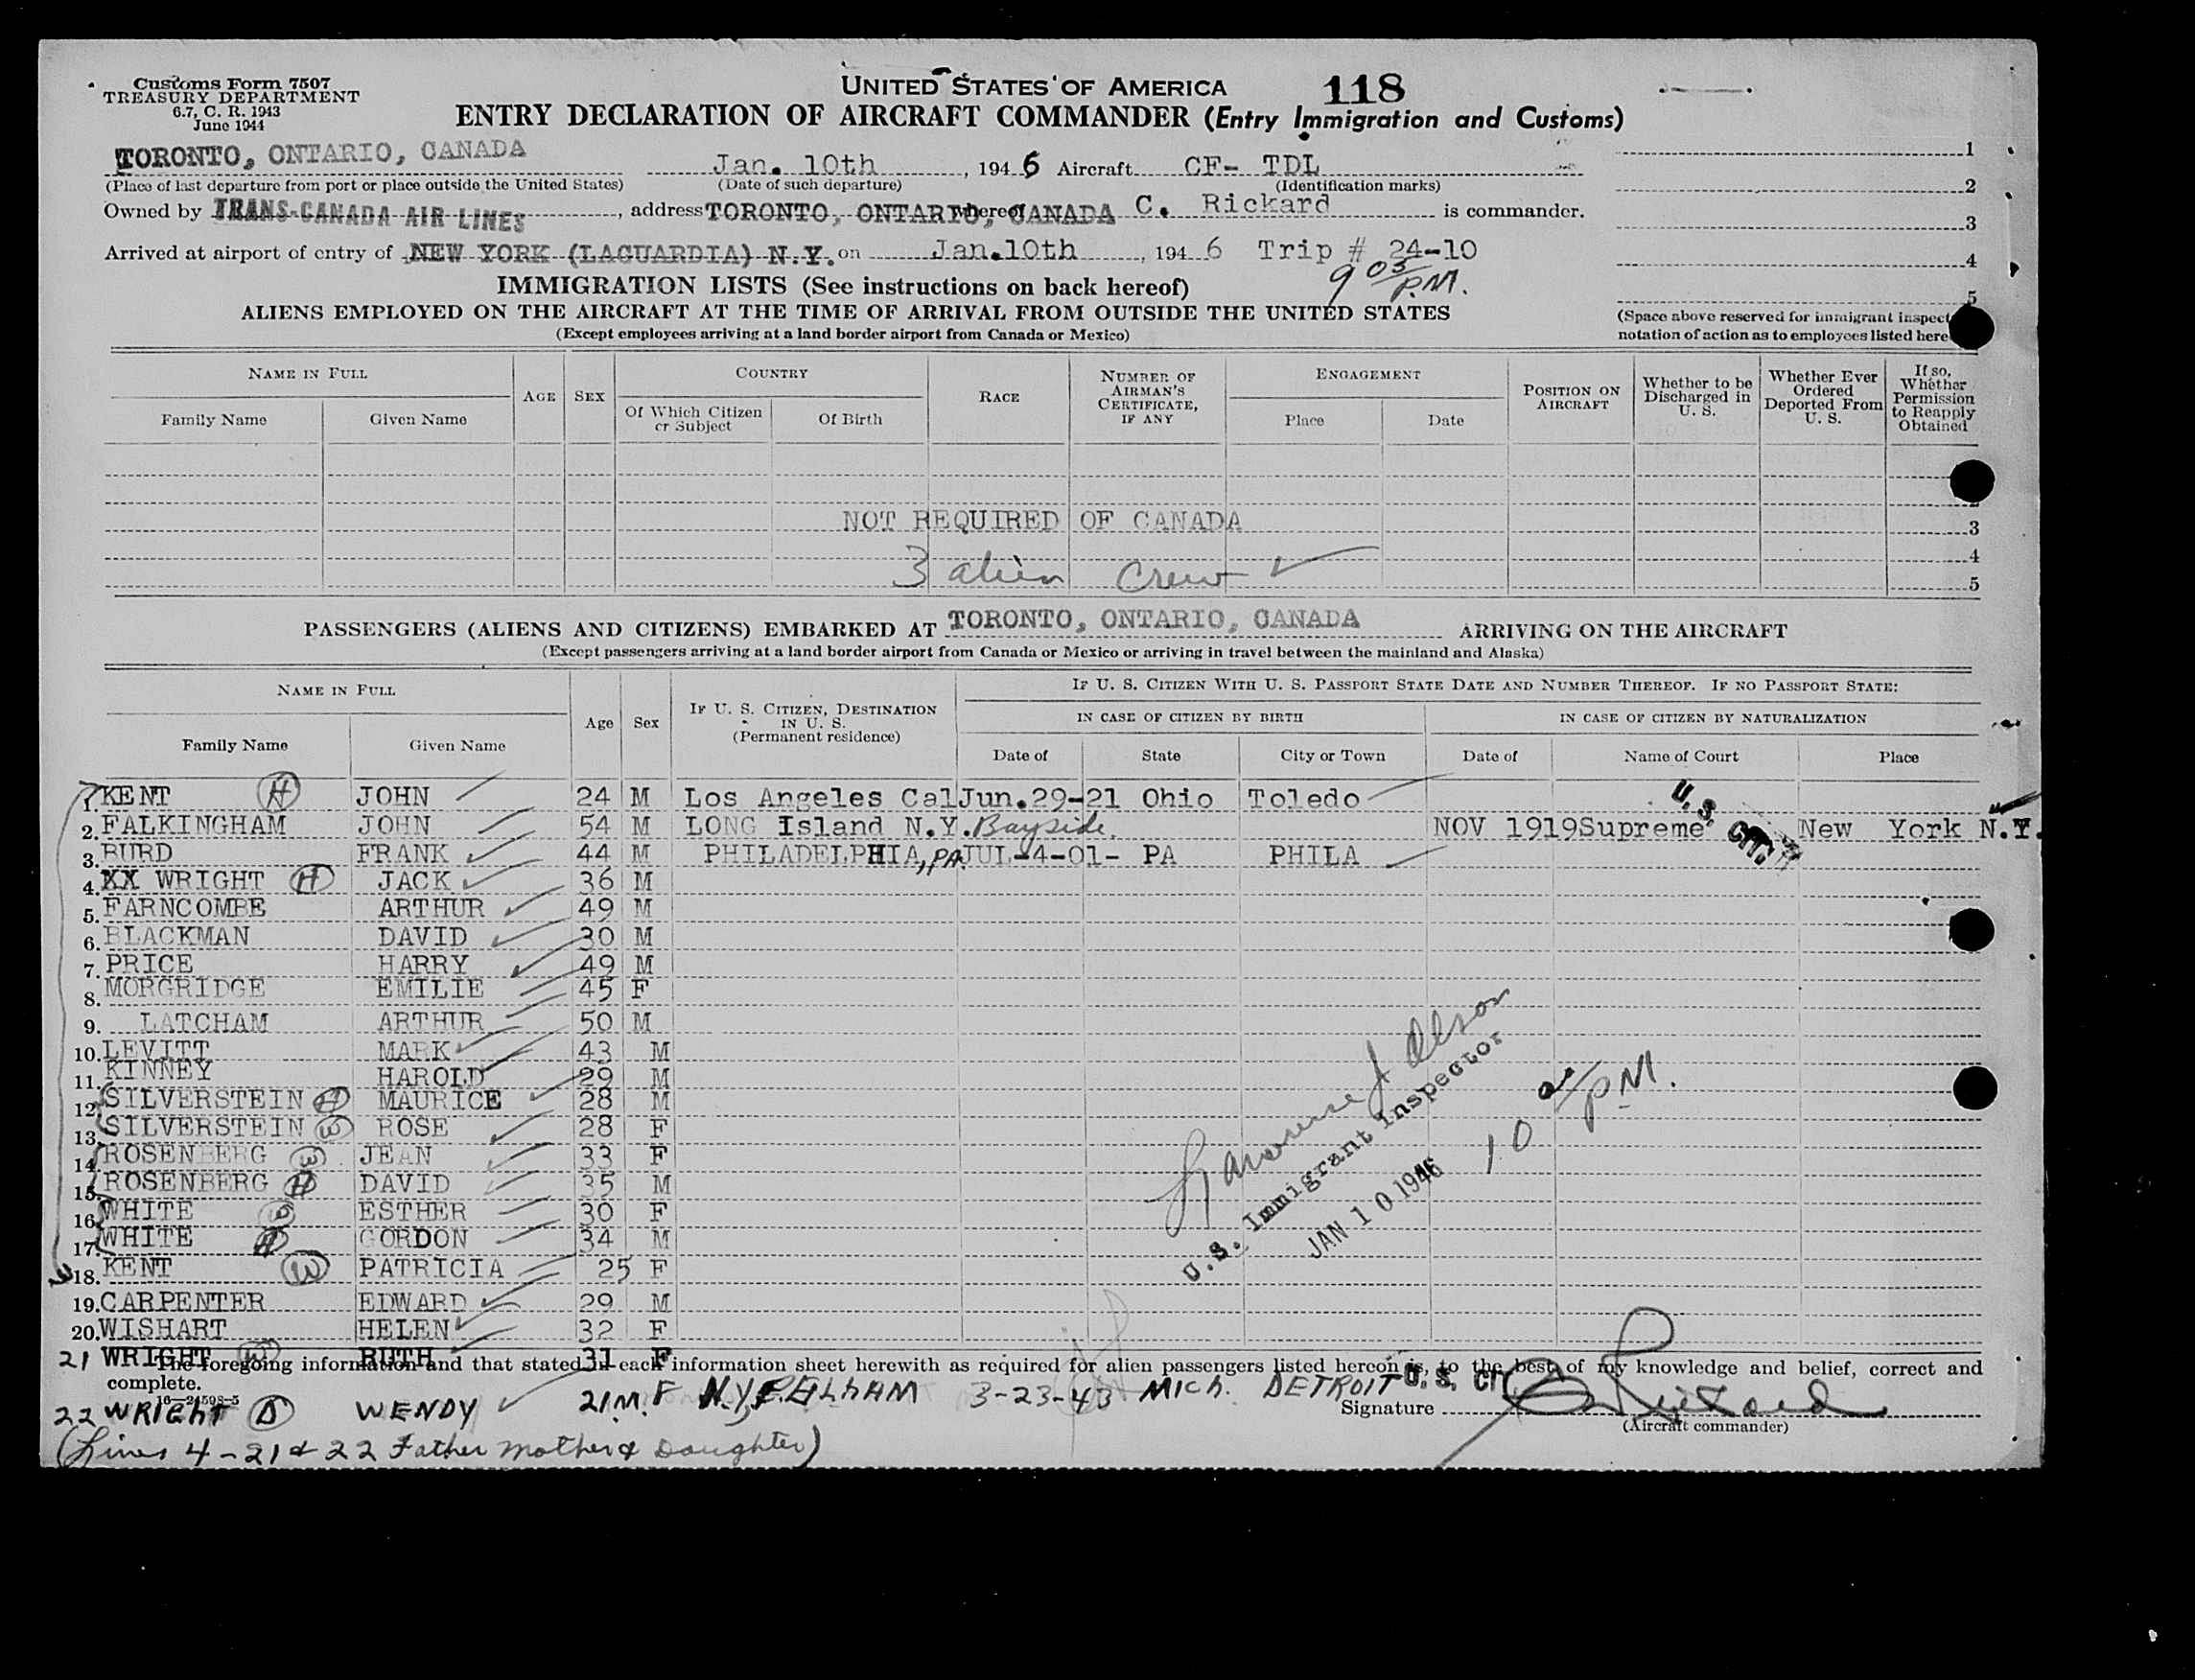 Customs Form 7507
TREASURY DEPARTMENT
6.7, C. R. 1943
June 1944
UNITED STATES OF AMERICA 118
ENTRY DECLARATION OF AIRCRAFT COMMANDER (Entry Immigration and Customs)
TORONTO, ONTARIO, CANADA Jan. 10th, 1946 Aircraft CF- TDL
(Place of last departure from port or place outside the United States) (Date of such departure) (Identification marks)
Owned by TRANS-CANADA AIR LINES, address TORONTO, ONTARIO, CANADA whereof C. Rickard is commander.
Arrived at airport of entry of NEW YORK (LAGUARDIA) N.Y. on Jan.10th, 1946 Trip # 24-10
9 05 P.M.
1
2
3
4
5
IMMIGRATION LISTS (See instructions on back hereof)
ALIENS EMPLOYED ON THE AIRCRAFT AT THE TIME OF ARRIVAL FROM OUTSIDE THE UNITED STATES
(Except employees arriving at a land border airport from Canada or Mexico)
(Space above reserved for immigrant inspect
notation of action as to employees listed here
NAME IN FULL AGE SEX COUNTRY RACE NUMBER OF AIRMAN'S CERTIFICATE, IF ANY ENGAGEMENT POSITION ON AIRCRAFT Whether to be Discharged in U. S. Whether Ever Ordered Deported From U. S. If so, Whether Permission to Reapply Obtained
Family Name Given Name Of Which Citizen or Subject Of Birth Place Date
NOT REQUIRED OF CANADA 3
4
3 alien crew 5
PASSENGERS (ALIENS AND CITIZENS) EMBARKED AT TORONTO, ONTARIO, CANADA ARRIVING ON THE AIRCRAFT
(Except passengers arriving at a land border airport from Canada or Mexico or arriving in travel between the mainland and Alaska)
NAME IN FULL Age Sex IF U. S. CITIZEN, DESTINATION IN U. S. (Permanent residence) IF U. S. CITIZEN WITH U. S. PASSPORT STATE DATE AND NUMBER THEREOF. IF NO PASSPORT STATE:
IN CASE OF CITIZEN BY BIRTH IN CASE OF CITIZEN BY NATURALIZATION
Family Name Given Name Date of State City or Town Date of Name of Court Place
1. KENT H JOHN 24 M Los Angeles Cal Jun.29-21 Ohio Toledo
2. FALKINGHAM JOHN 54 M LONG Island N.Y. Bayside. NOV 1919 Supreme U.S. CIT. New York N.Y.
3. BURD FRANK 44 M PHILADELPHIA, PA. JUL-4-01- PA PHILA
4. XX WRIGHT H JACK 36 M
5. FARNCOMBE ARTHUR 49 M
6. BLACKMAN DAVID 30 M
7. PRICE HARRY 49 M
8. MORGRIDGE EMILIE 45 F
9. LATCHAM ARTHUR 50 M
10. LEVITT MARK 43 M
11. KINNEY HAROLD 29 M
12. SILVERSTEIN H MAURICE 28 M
13. SILVERSTEIN W ROSE 28 F
14. ROSENBERG W JEAN 33 F
15. ROSENBERG H DAVID 35 M
16. WHITE W ESTHER 30 F
17. WHITE H GORDON 34 M
18. KENT W PATRICIA 25 F
19. CARPENTER EDWARD 29 M
20. WISHART HELEN 32 F
U.S. Immigrant Inspector
JAN 10 1946
10 P.M.
21 WRIGHT W RUTH 31 F
The foregoing information and that stated in each information sheet herewith as required for alien passengers listed hereon is, to the best of my knowledge and belief, correct and
complete.
22 WRIGHT D WENDY 21M. F N.Y. PELHAM 3-23-43 MICH. DETROIT U.S. CIT
Signature
(Aircraft commander)
(Lines 4-21 & 22 Father Mother & Daughter)